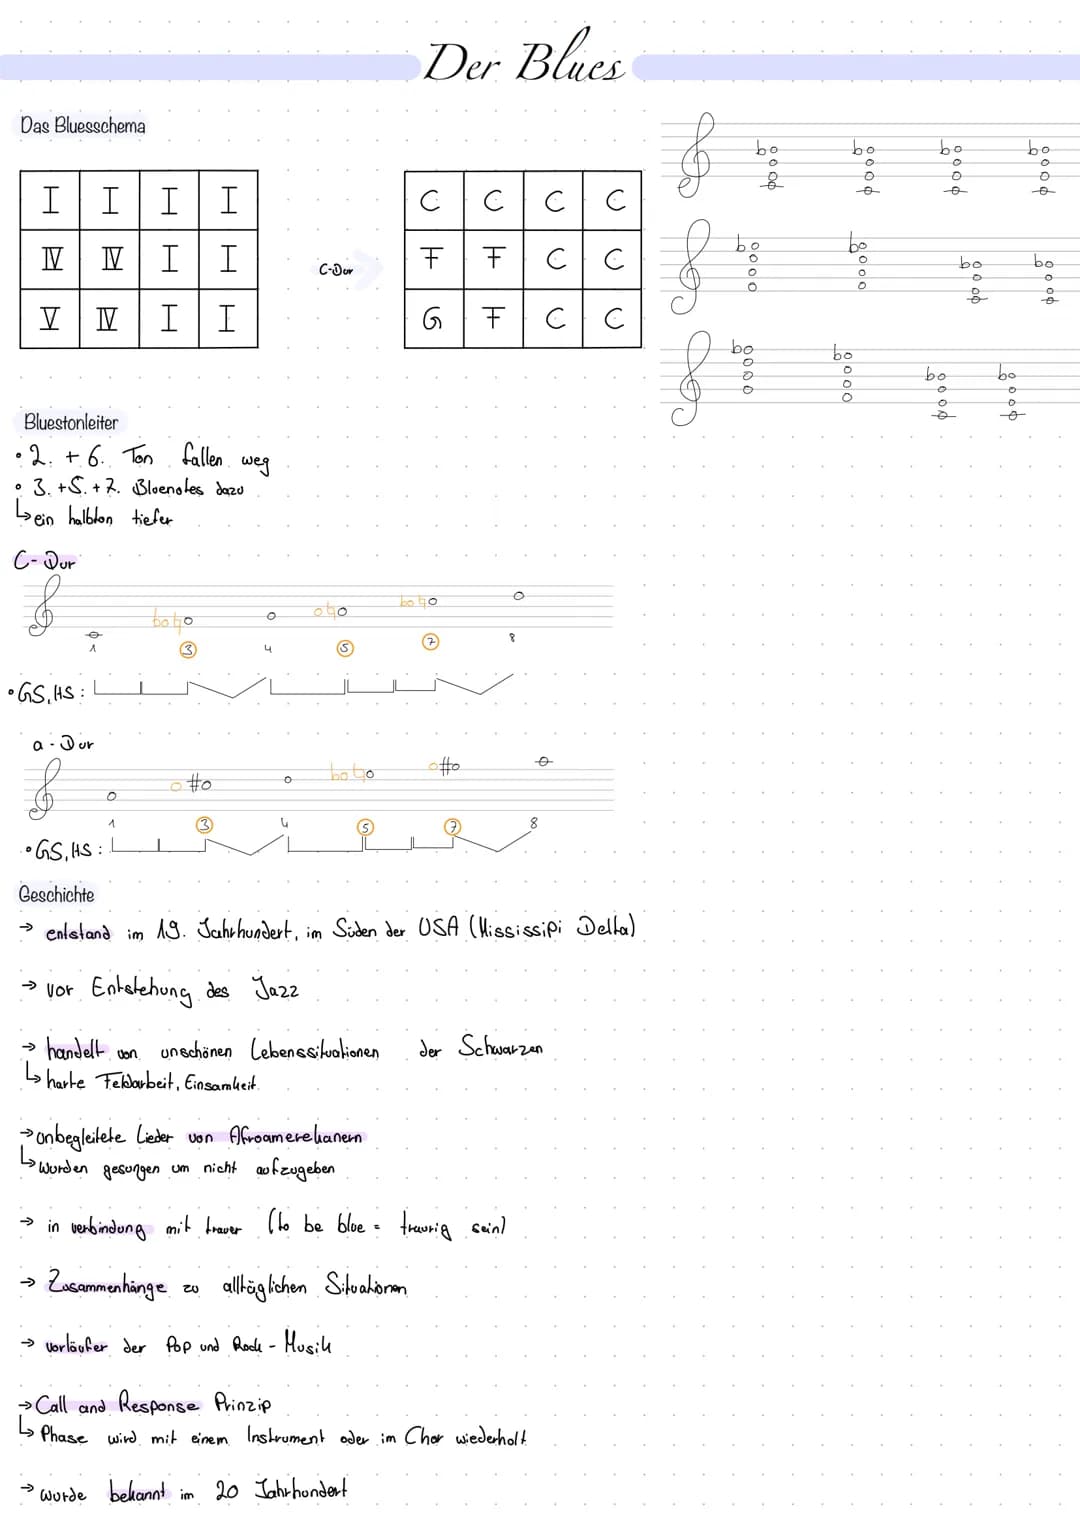 Der Blues
Das Bluesschema
I I I I
IV IV I I
V IV I I
C-Dur
C C C C
F F C C
G F C C
Bluestonleiter
• 2. + 6. Ton fallen weg
• 3. + 5. + 7. Bluenotes dazu
↳ ein halbton tiefer
C-Dur
1 3 4 5 7 8
• GS, HS :
a-Dur
1 3 4 5 7 8
• GS, HS :
Geschichte
→ entstand im 19. Jahrhundert, im Süden der USA (Mississipi Delta)
→ vor Entstehung des Jazz
→ handelt von unschönen Lebenssituationen der Schwarzen
↳ harte Feldarbeit, Einsamkeit
→ unbegleitete Lieder von Afroamerekanern
↳ wurden gesungen um nicht aufzugeben
→ in verbindung mit trauer (to be blue = traurig sein)
→ Zusammenhänge zu alltäglichen Situationen
→ vorläufer der Pop und Rock - Musik
→ Call and Response Prinzip
↳ Phase wird mit einem Instrument oder im Chor wiederholt
→ wurde bekannt im 20 Jahrhundert